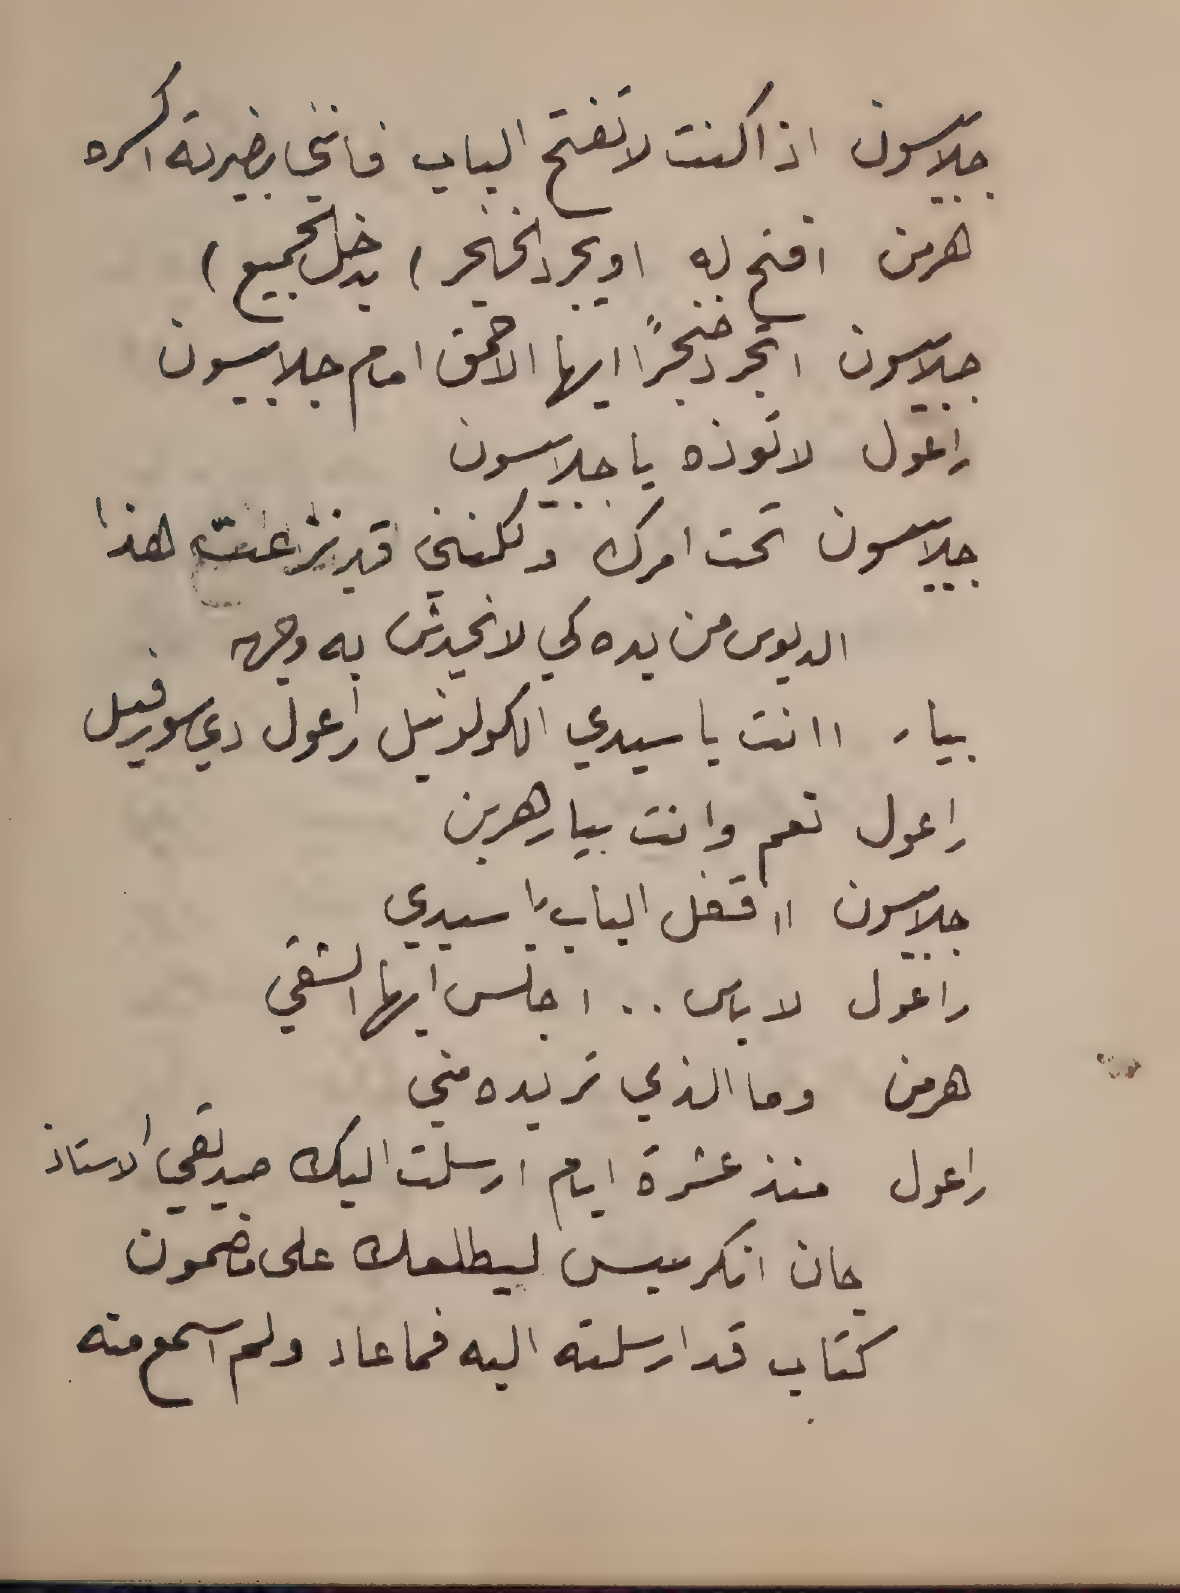 جلابيسون اذا كنت لا تفتح الباب فانني بضربة اكسره
هرمن افتح له (ويجرد الخنجر) (يدخل الجميع)
جلابيسون اتجرد خنجرًا ايها الاحمق امام جلابيسون
راعول لا تؤذه يا جلابيسون
جلابيسون تحت امرك ولكنني قد نزعت هذا
الدبوس من يده كي لا نخدش به وجهه
بيار اانت يا سيدي الكولونيل راعول دي سورفيل
راعول نعم وانت بيار هرمن
جلابيسون ااقفل الباب يا سيدي
راعول لا باس .. اجلس ايها الشقي
هرمن وما الذي تريده مني
راعول منذ عشرة ايام ارسلت اليك صديقي الاستاذ
جان انكرميس ليطلعك على مضمون
كتاب قد ارسلته اليه فما عاد ولم اسمع منه